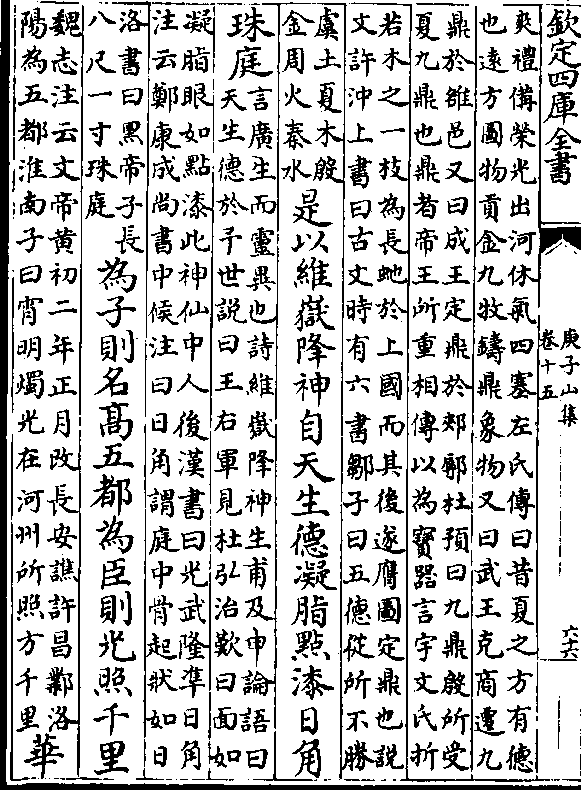 欽定四庫全書
庾子山集
卷十五
六六
爽禮備榮光出河休氣四塞左氏傳曰昔夏之方有德
也遠方圖物貢金九牧鑄鼎象物又曰武王克商遷九
鼎於雒邑又曰成王定鼎於郟鄏杜預曰九鼎殷所受
夏九鼎也鼎者帝王所重相傳以為寶器言宇文氏折
若木之一枝為長虵於上國而其後遂膺圖定鼎也說
文許沖上書曰古文時有六書鄒子曰五德從所不勝
虞土夏木殷
金周火秦水
是以維嶽降神自天生德凝脂點漆日角
珠庭
言廣生而靈異也詩維嶽降神生甫及申論語曰
天生德於予世說曰王右軍見杜弘治歎曰面如
凝脂眼如點漆此神仙中人後漢書曰光武隆準日角
注云鄭康成尚書中候注曰日角謂庭中骨起狀如日
洛書曰黑帝子長
八尺一寸珠庭
為子則名高五都為臣則光照千里
魏志注云文帝黃初二年正月改長安譙許昌鄴洛
陽為五都淮南子曰宵明燭光在河州所照方千里
華